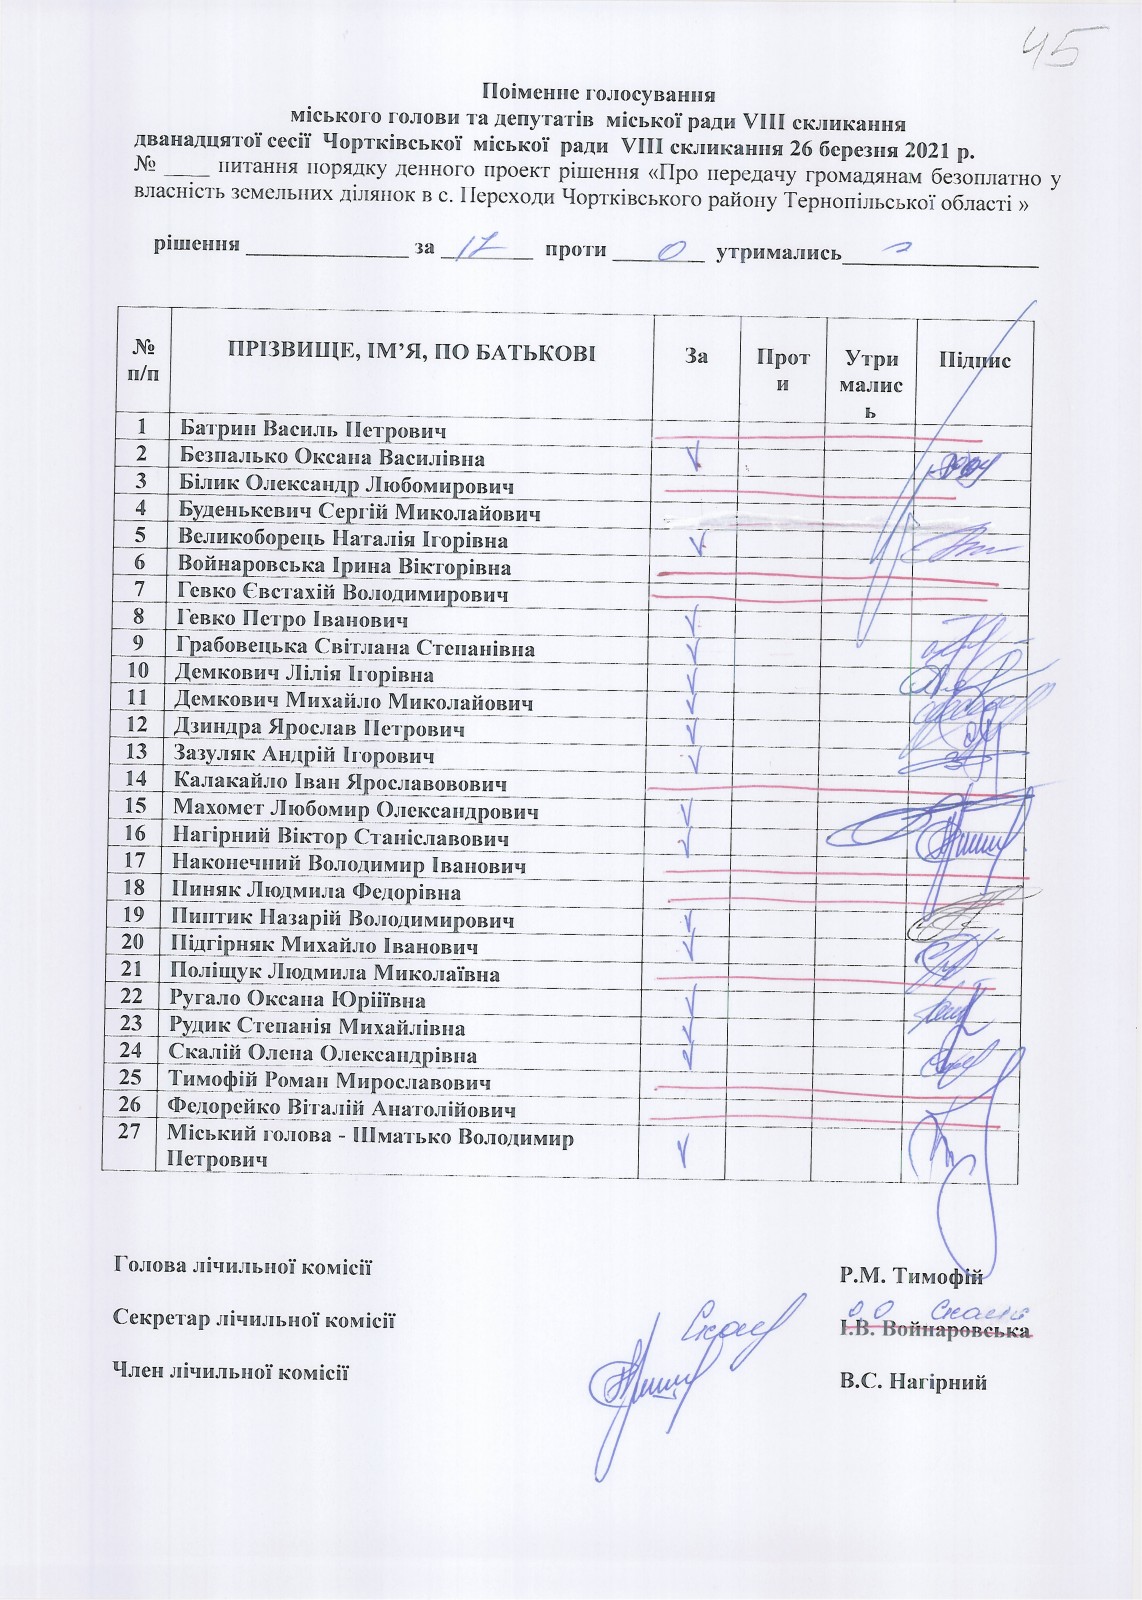 45
Поіменне голосування
міського голови та депутатів міської ради VIII скликання
дванадцятої сесії Чортківської міської ради VIII скликання 26 березня 2021 р.
№ ____ питання порядку денного проект рішення «Про передачу громадянам безоплатно у
власність земельних ділянок в с. Переходи Чортківського району Тернопільської області »
рішення _______________ за 17 проти 0 утримались
№ п/п ПРІЗВИЩЕ, ІМ’Я, ПО БАТЬКОВІ За Прот и Утри малис ь Підпис
1 Батрин Василь Петрович
2 Безпалько Оксана Василівна V
3 Білик Олександр Любомирович
4 Буденькевич Сергій Миколайович
5 Великоборець Наталія Ігорівна V
6 Войнаровська Ірина Вікторівна
7 Гевко Євстахій Володимирович
8 Гевко Петро Іванович V
9 Грабовецька Світлана Степанівна V
10 Демкович Лілія Ігорівна V
11 Демкович Михайло Миколайович V
12 Дзиндра Ярослав Петрович V
13 Зазуляк Андрій Ігорович V
14 Калакайло Іван Ярославовович
15 Махомет Любомир Олександрович V
16 Нагірний Віктор Станіславович V
17 Наконечний Володимир Іванович
18 Пиняк Людмила Федорівна
19 Пиптик Назарій Володимирович V
20 Підгірняк Михайло Іванович V
21 Поліщук Людмила Миколаївна
22 Ругало Оксана Юріїївна V
23 Рудик Степанія Михайлівна V
24 Скалій Олена Олександрівна V
25 Тимофій Роман Мирославович
26 Федорейко Віталій Анатолійович
27 Міський голова - Шматько Володимир V
Петрович
Голова лічильної комісії Р.М. Тимофій
О.О Скалій
Секретар лічильної комісії І.В. Войнаровська
Член лічильної комісії В.С. Нагірний